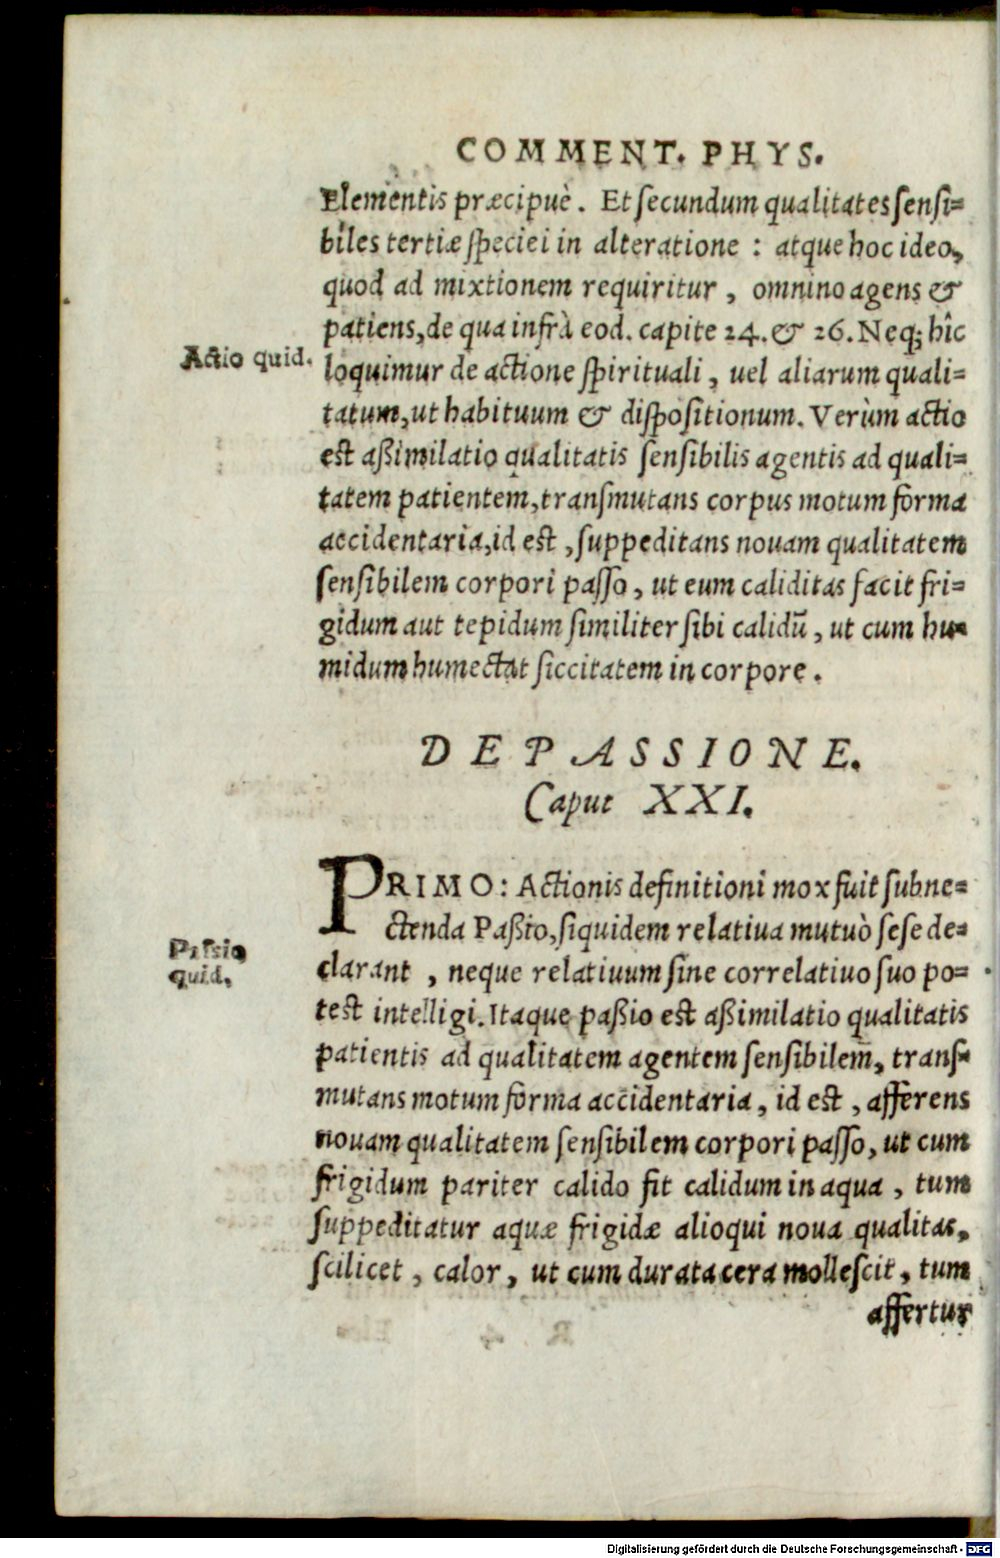 COMMENT. PHYS.
Elementis præcipuè. Et ſecundum qualitates ſenſi=
biles tertiæ ſpeciei in alteratione : atque hoc ideo,
quod ad mixtionem requiritur, omnino agens &
patiens, de qua infrà eod. capite 24. & 26. Neq; hîc
Actio quid.
loquimur de actione ſpirituali, uel aliarum quali=
tatum, ut habituum & diſpoſitionum. Verùm actio
est aßimilatio qualitatis ſenſibilis agentis ad quali=
tatem patientem, tranſmutans corpus motum forma
accidentaria, id est, ſuppeditans nouam qualitatem
ſenſibilem corpori paſſo, ut eum caliditas facit fri=
gidum aut tepidum ſimiliter ſibi calidū, ut cum hu=
midum humectat ſiccitatem in corpore.
DE PASSIONE.
Caput XXI.
PRIMO: Actionis definitioni mox fuit ſubne=
ctenda Paßio, ſiquidem relatiua mutuò ſeſe de=
Paſsio
quid.
clarant, neque relatiuum ſine correlatiuo ſuo po=
test intelligi. Itaque paßio est aßimilatio qualitatis
patientis ad qualitatem agentem ſenſibilem̄, tranſ=
mutans motum forma accidentaria, id est, afferens
nouam qualitatem ſenſibilem corpori paſſo, ut cum
frigidum pariter calido fit calidum in aqua, tum
ſuppeditatur aquæ frigidæ alioqui noua qualitas,
ſcilicet, calor, ut cum durata cera molleſcit, tum
affertur
Digitalisierung gefördert durch die Deutsche Forschungsgemeinschaft - DFG